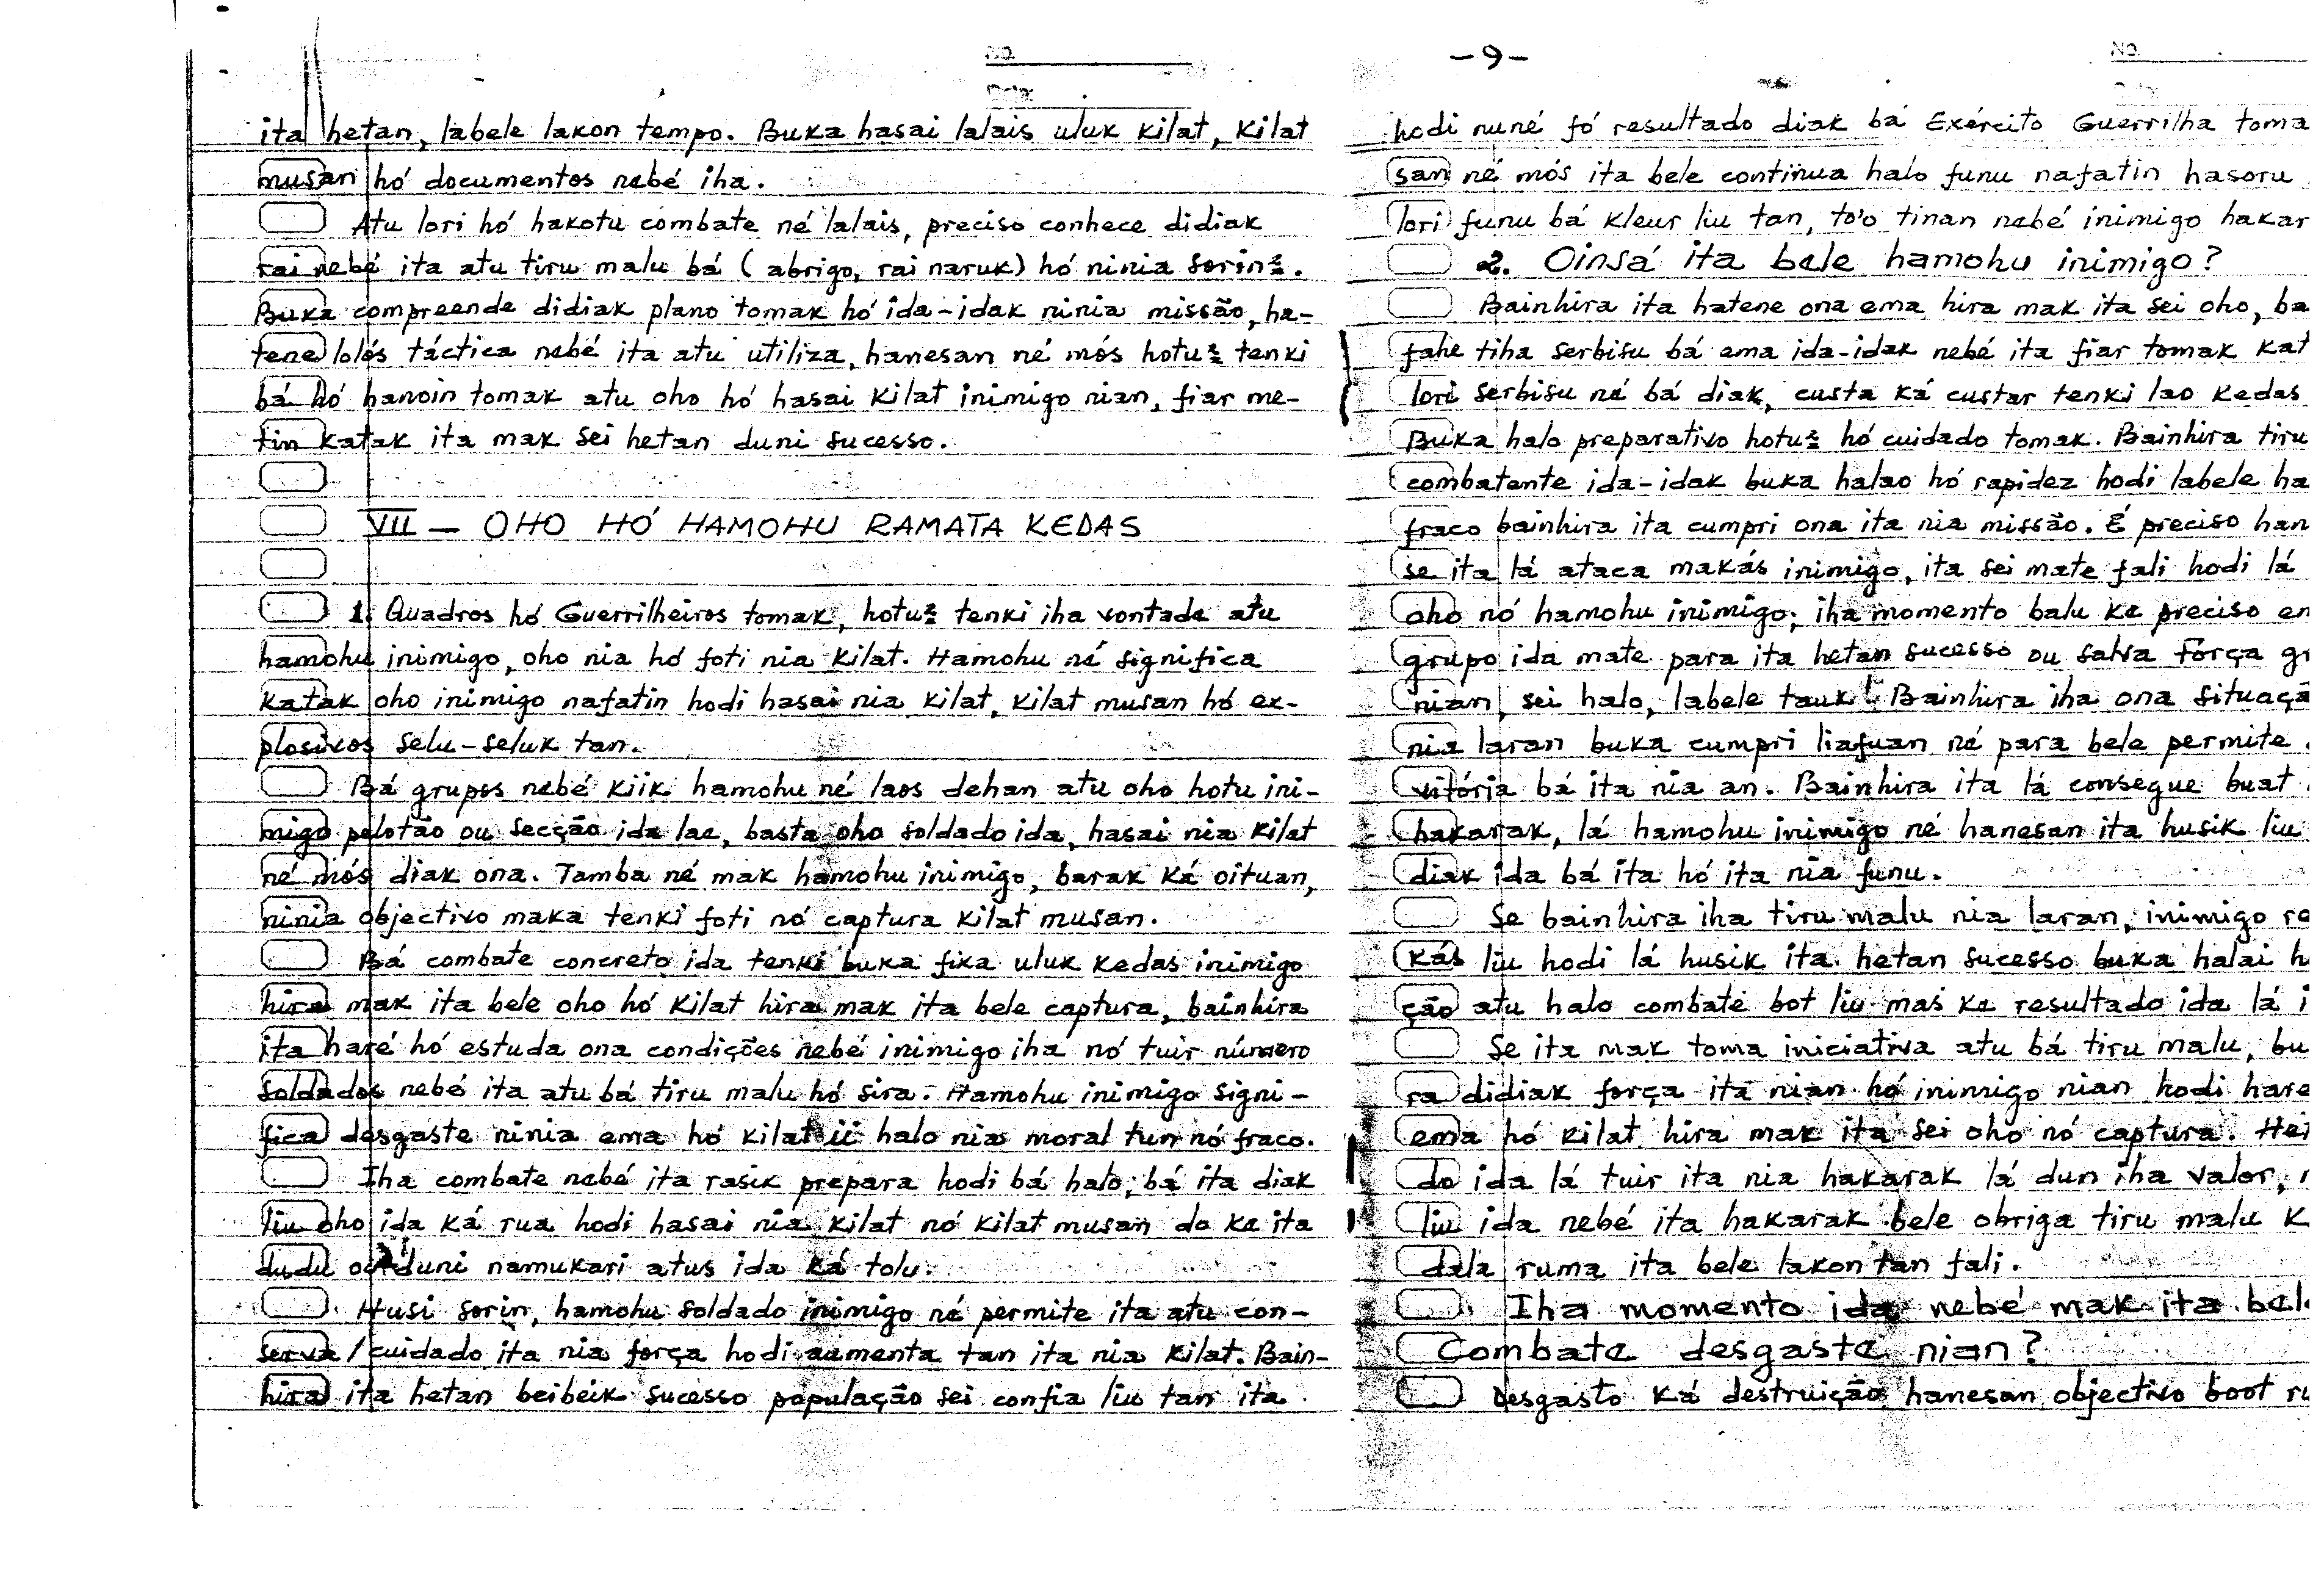 No.
ita hetan, labele lakon tempo. Buka hasai lalais uluk kilat, kilat
musan hó documentos nebé iha.
Atu lori hó hakotu combate né lalais, preciso conhece didiak
rai nebé ita atu tiru malu bá (abrigo, rai naruk) hó ninia sorin2.
Buka compreende didiak plano tomak hó ida-idak ninia missão, ha-
tene lolós táctica nebé ita atu utiliza, hanesan né mós hotu2 tenki
bá hó hanoin tomak atu oho hó hasai kilat inimigo nian, fiar me-
tin katak ita mak sei hetan duni sucesso.
VII - OHO HÓ HAMOHU RAMATA KEDAS
1. Quadros hó Guerrilheiros tomak, hotu2 tenki iha vontade atu
hamohu inimigo, oho nia hó foti nia kilat. Hamohu né significa
katak oho inimigo nafatin hodi hasai nia kilat, kilat musan hó ex-
plosivos selu-seluk tan.
Bá grupos nebé kiik hamohu né laos dehan atu oho hotu ini-
migo pelotão ou secção ida lae, basta oho soldado ida, hasai nia kilat
né mós diak ona. Tamba né mak hamohu inimigo, barak ká oituan,
ninia objectivo maka tenki foti nó captura kilat musan.
Bá combate concreto ida tenki buka fixa uluk kedas inimigo
hira mak ita bele oho hó kilat hira mak ita bele captura, bainhira
ita haré hó estuda ona condições nebé inimigo iha nó tuir número
soldados nebé ita atu bá tiru malu hó sira. Hamohu inimigo signi-
fica desgaste ninia ema hó kilat ii halo nia moral tun nó fraco.
Iha combate nebé ita rasik prepara hodi bá halo, bá ita diak
liu oho ida ká rua hodi hasai nia kilat nó kilat musan do ke ita
dudu duni namukari atus ida ká tolu.
Husi sorin, hamohu soldado inimigo né permite ita atu con-
serva / cuidado ita nia força hodi aumenta tan ita nia kilat. Bain-
hira ita hetan beibeik sucesso população sei confia liu tan ita
-9-
No.
hodi nuné fó resultado diak bá Exército Guerrilha toma
san né mós ita bele continua halo funu nafatin hasoru
lori funu bá kleur liu tan, to'o tinan nebé inimigo hakar
2. Oinsá ita bele hamohu inimigo?
Bainhira ita hatene ona ema hira mak ita sei oho, ba
fahe tiha serbisu bá ema ida-idak nebé ita fiar tomak kat
lori serbisu né bá diak, custa ká custar tenki lao kedas
Buka halo preparativo hotu2 hó cuidado tomak. Bainhira tiru
combatente ida-idak buka halao hó rapidez hodi labele ha
fraco bainhira ita cumpri ona ita nia missão. É preciso han
se ita lá ataca makás inimigo, ita sei mate fali hodi lá
oho nó hamohu inimigo; iha momento balu ke preciso en
grupo ida mate para ita hetan sucesso ou salva força gr
nian, sei halo, labele tauk! Bainhira iha ona situaçã
nia laran buka cumpri liafuan né para bele permite
vitória bá ita nia an. Bainhira ita lá consegue buat
hakarak, lá hamohu inimigo né hanesan ita husik liu
diak ida bá ita hó ita nia funu.
Se bainhira iha tiru malu nia laran, inimigo re
kás liu hodi lá husik ita hetan sucesso buka halai h
ção atu halo combate bot liu mas ke resultado ida lá i
Se ita mak toma iniciativa atu bá tiru malu, bu
ra didiak força ita nian hó inimigo nian hodi hare
ema hó kilat hira mak ita sei oho nó captura. Hei
do ida lá tuir ita nia hakarak lá dun iha valor,
liu ida nebé ita hakarak bele obriga tiru malu k
dala ruma ita bele lakon tan fali.
Iha momento ida nebé mak ita bele
Combate desgaste nian?
Desgasto ká destruição hanesan objectivo boot ru